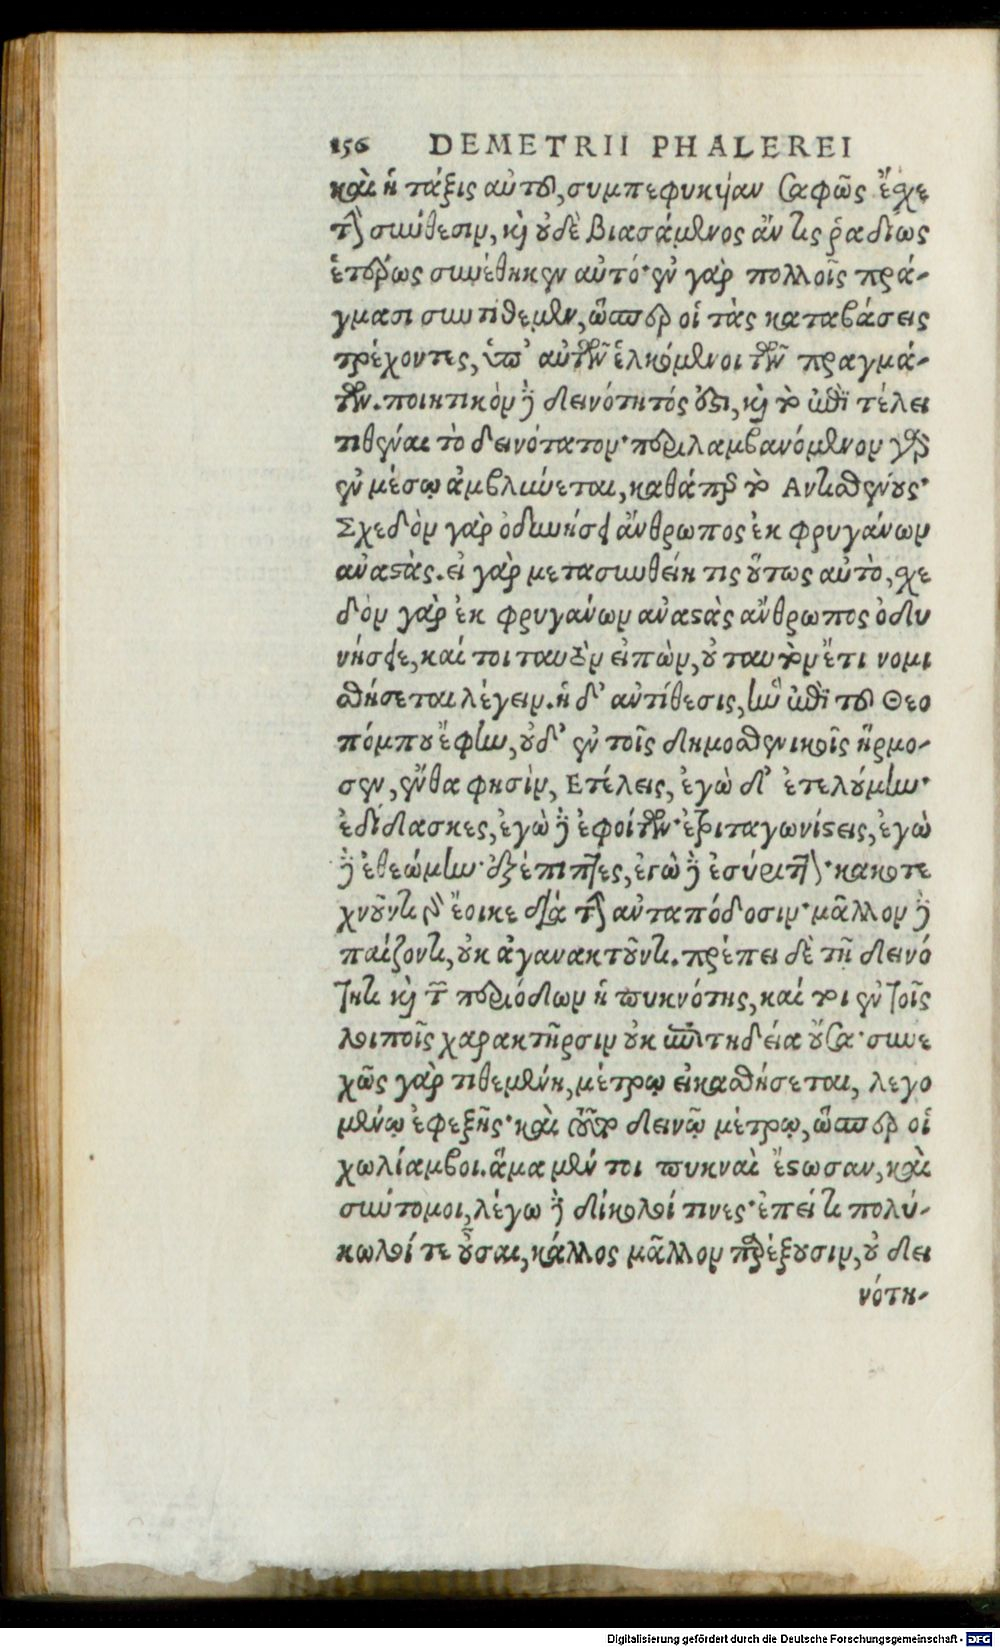 156 DEMETRII PHALEREI
καὶ ἡ τάξις αὐτοῦ, συμπεφυκῇαν σαφῶς ἔσχε
τὴν σύνθεσιν, καὶ οὐδὲ βιασάμενος ἄν τις ῥαδίως
ἑτέρως συνέθηκεν αὐτό· ἐν γὰρ πολλοῖς πρά-
γμασι συντιθεμεν, ὥσπερ οἱ τὰς καταβάσεις
τρέχοντες, ὑπ’ αὐτῶν ἑλκόμενοι τῶν πραγμά-
των. ποιητικὸν δὲ δεινότητός ἐστι, καὶ τὸ ἐπὶ τέλει
τιθέναι τὸ δεινότατον· περιλαμβανόμενον γὰρ
ἐν μέσῳ ἀμβλύνεται, καθάπερ τὸ Αντισθένους·
Σχεδὸν γὰρ ὀδυνήσει ἄνθρωπος ἐκ φρυγάνων
ἀναστὰς. εἰ γὰρ μετασυνθείη τις οὕτως αὐτὸ, σχε
δὸν γὰρ ἐκ φρυγάνων ἀναστὰς ἄνθρωπος ὀδυ
νήσειε, καί τοι ταυτὸν εἰπὼν, οὐ ταυτὸν ἔτι νομι
σθήσεται λέγειν. ἡ δ’ ἀντίθεσις, ἣν ἐπὶ τοῦ Θεο
πόμπου ἔφην, οὐδ’ ἐν τοῖς δημοσθενικοῖς ἥρμο-
σεν, ἔνθα φησὶν, Ετέλεις, ἐγὼ δ’ ἐτελούμην·
ἐδίδασκες, ἐγὼ δὲ ἐφοίτων· ἐτριταγωνίστεις, ἐγὼ
δὲ ἐθεώμην· ἐξέπιπτες, ἐγὼ δὲ ἐσύριττον· κακοτε
χνοῦντι γὰρ ἔοικε διὰ τὴν ἀνταπόδοσιν· μᾶλλον δὲ
παίζοντι, οὐκ ἀγανακτοῦντι. πρέπει δὲ τῇ δεινό
τητι καὶ τῶν περιόδων ἡ πυκνότης, καί τοι ἐν τοῖς
λοιποῖς χαρακτῆρσιν οὐκ ἐπιτηδεία οὖσα· συνε
χῶς γὰρ τιθεμένη, μέτρῳ εἰκασθήσεται, λεγο
μένῳ ἐφεξῆς· καὶ τοῦτο δεινῷ μέτρῳ, ὥσπερ οἱ
χωλίαμβοι. ἅμα μέν τοι πυκναὶ ἔστωσαν, καὶ
σύντομοι, λέγω δὲ δίκωλοί τινες· ἐπεί τι πολύ-
κωλοί τε οὖσαι, κάλλος μᾶλλον παρέξουσιν, οὐ δει
νότη-
Digitalisierung gefördert durch die Deutsche Forschungsgemeinschaft - DFG